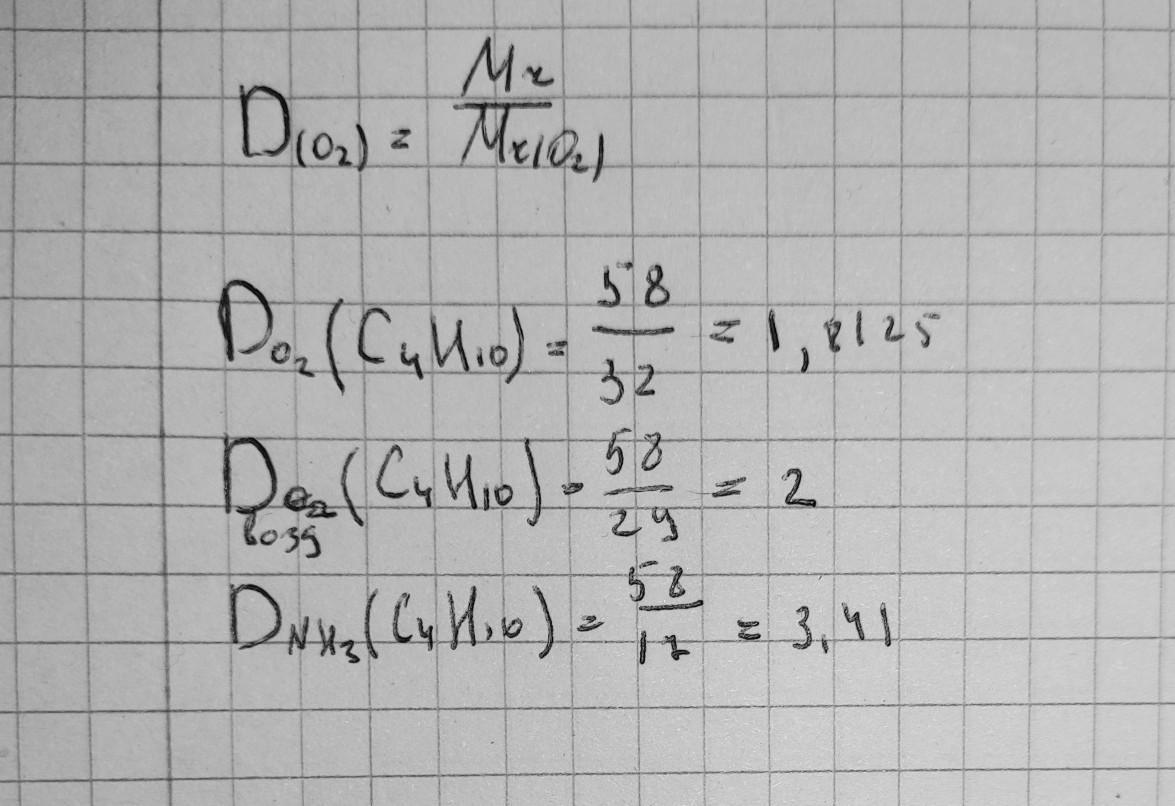 D(O₂) = Mr / Mr(O₂)
D O₂ (C₄H₁₀) = 58 / 32 = 1,8125
D возд (C₄H₁₀) = 58 / 29 = 2
D NH₃ (C₄H₁₀) = 58 / 17 = 3,41